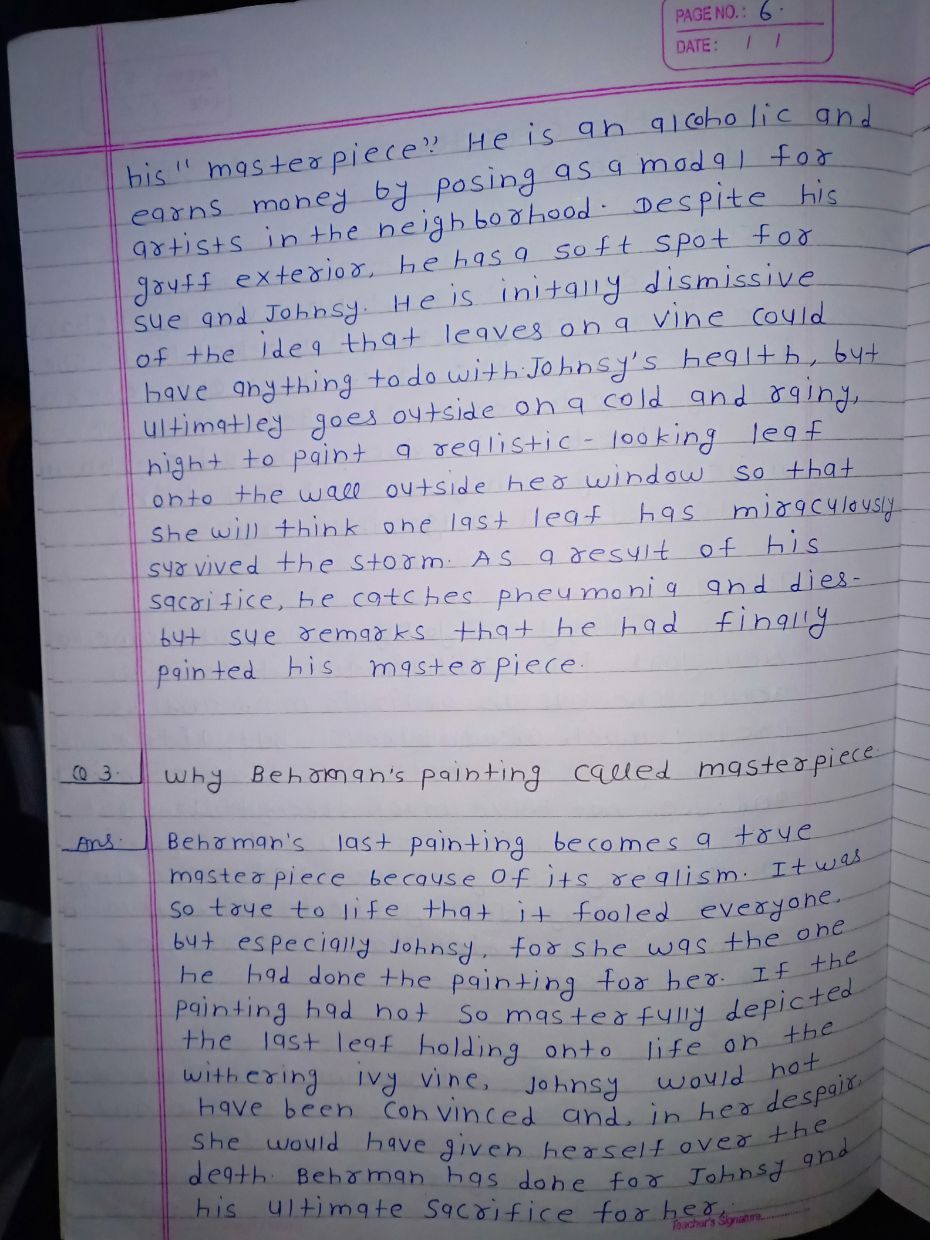 PAGE NO.: 6.
DATE: / /
his "masterpiece". He is an alcoholic and
earns money by posing as a modal for
artists in the neighborhood. Despite his
gruff exterior, he has a soft spot for
Sue and Johnsy. He is initally dismissive
of the idea that leaves on a vine could
have anything to do with Johnsy's health, but
ultimatley goes outside on a cold and rainy,
night to paint a realistic-looking leaf
onto the wall outside her window so that
she will think one last leaf has miraculously
survived the storm. As a result of his
sacrifice, he catches pneumonia and dies-
but sue remarks that he had finally
painted his masterpiece.
Q 3. Why Behrman's painting called masterpiece.
Ans. Behrman's last painting becomes a true
masterpiece because of its realism. It was
so true to life that it fooled everyone.
but especially Johnsy, for she was the one
he had done the painting for her. If the
painting had not so masterfully depicted
the last leaf holding onto life on the
withering ivy vine, Johnsy would not
have been convinced and, in her despair,
she would have given herself over the
death. Behrman has done for Johnsy and
his ultimate sacrifice for her.
Teacher's Signature